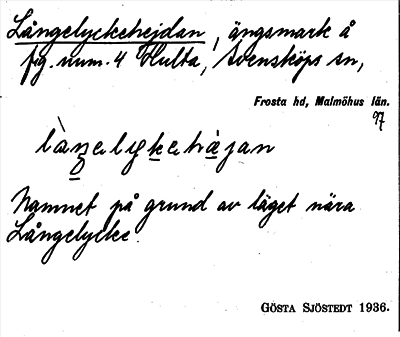 Långelyckehejdan, ängsmark å
fig. num. 4 Hulta, Svensköps sn,
Frosta hd, Malmöhus län.
97
Namnet på grund av läget nära
Långelycke.
GÖSTA SJÖSTEDT 1936.